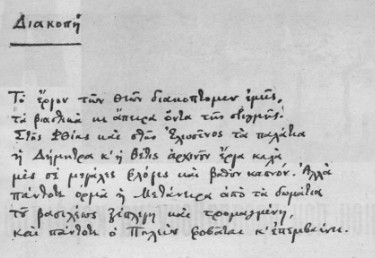 Διακοπή
Το έργον των θεών διακόπτομεν εμείς,
τα βιαστικά κι άπειρα όντα της στιγμής.
Στης Φθίας και στης Ελευσίνος τα παλάτια
η Δήμητρα κ' η Θέτις αρχινούν έργα καλά
μες σε μεγάλες φλόγες και βαθύν καπνόν. Αλλά
πάντοτε ορμά η Μετάνειρα από τα δωμάτια
του βασιλέως, ξέπλεγη και τρομαγμένη,
και πάντοτε ο Πηλεύς φοβάται κ' επεμβαίνει.